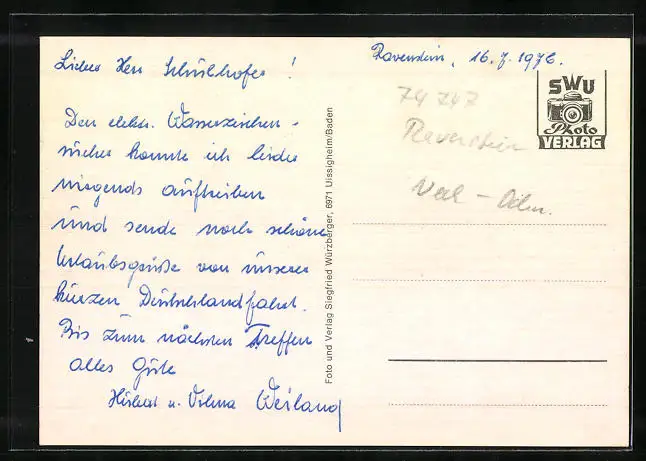 Lieber Herr Schülhofer!
Den elektr. Wasserzischen-
sucher konnte ich leider
nirgends auftreiben
und sende noch schöne
Urlaubsgrüße von unserer
kurzen Deutschlandfahrt.
Bis zum nächsten Treffen
alles Gute
u. Vilma Weiland
Foto und Verlag Siegfried Würzberger, 6971 Uissigheim/Baden
Ravenstein, 16.7.1976.
SWU
Photo
VERLAG
74 747
Ravenstein